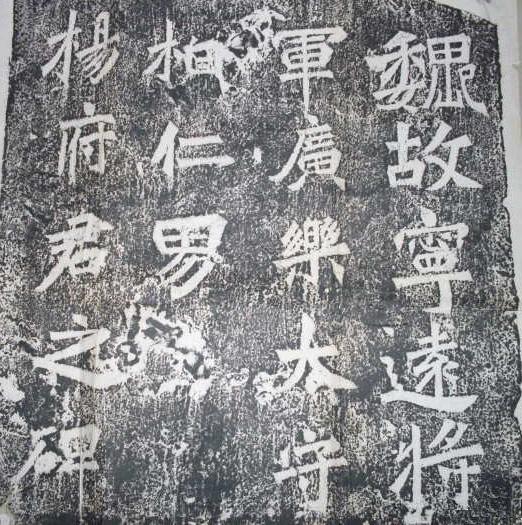 魏故寧遠將
軍廣樂太守
柏仁男
楊府君之碑